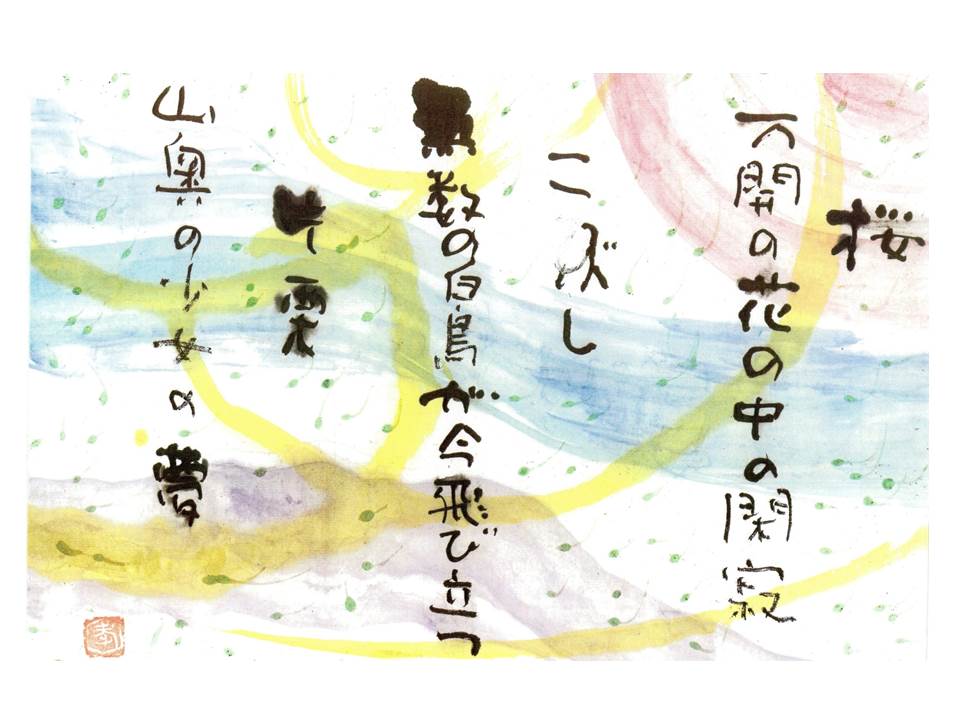 桜
万開の花の中の閑寂
こぶし
無数の白鳥が今飛び立つ
片栗
山奥の少女の夢